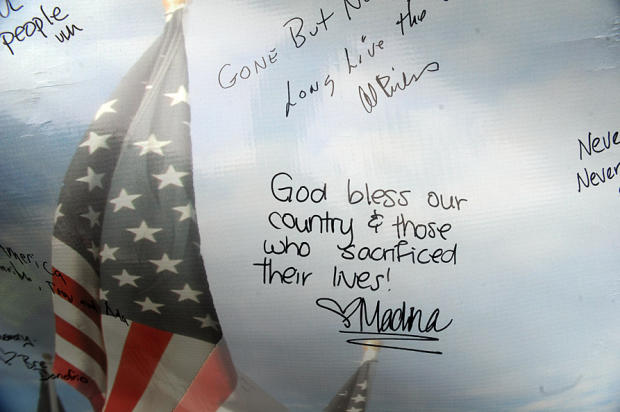 people
GONE BUT NO
LONG Live the
God bless our
country & those
who sacrificed
their lives!
♡Madina
Neve
Never
America